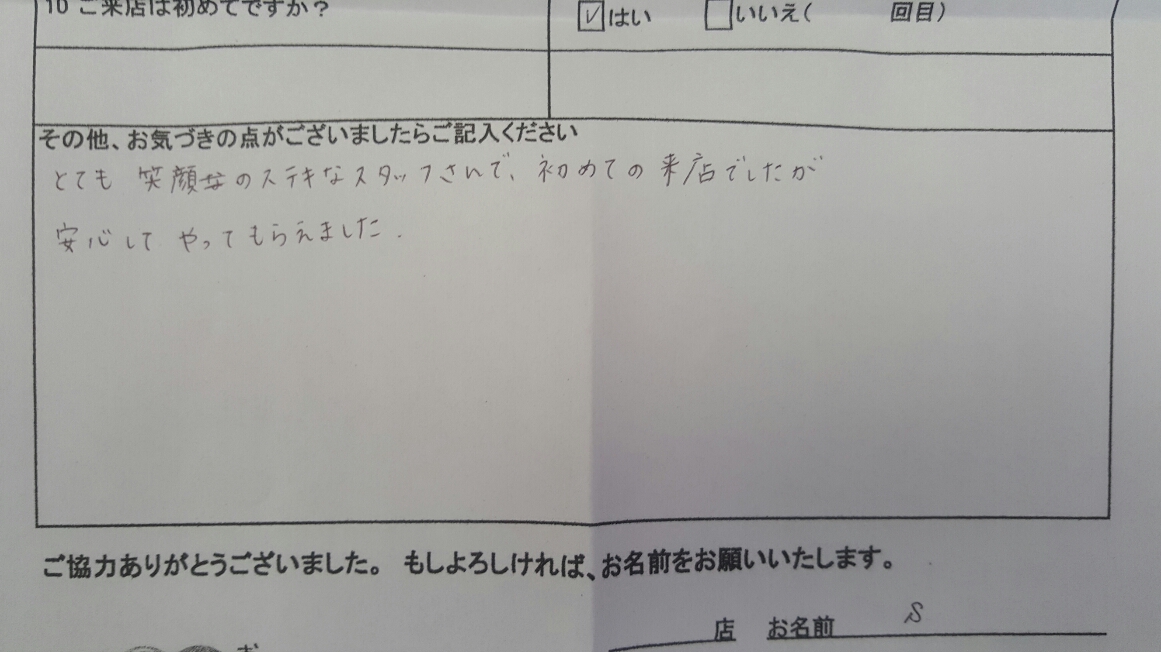 10 ご来店は初めてですか？
☑はい □いいえ( 回目)
その他、お気づきの点がございましたらご記入ください
とても 笑顔のステキなスタッフさんで、初めての来店でしたが
安心して やってもらえました.
ご協力ありがとうございました。 もしよろしければ、お名前をお願いいたします。
店 お名前 S